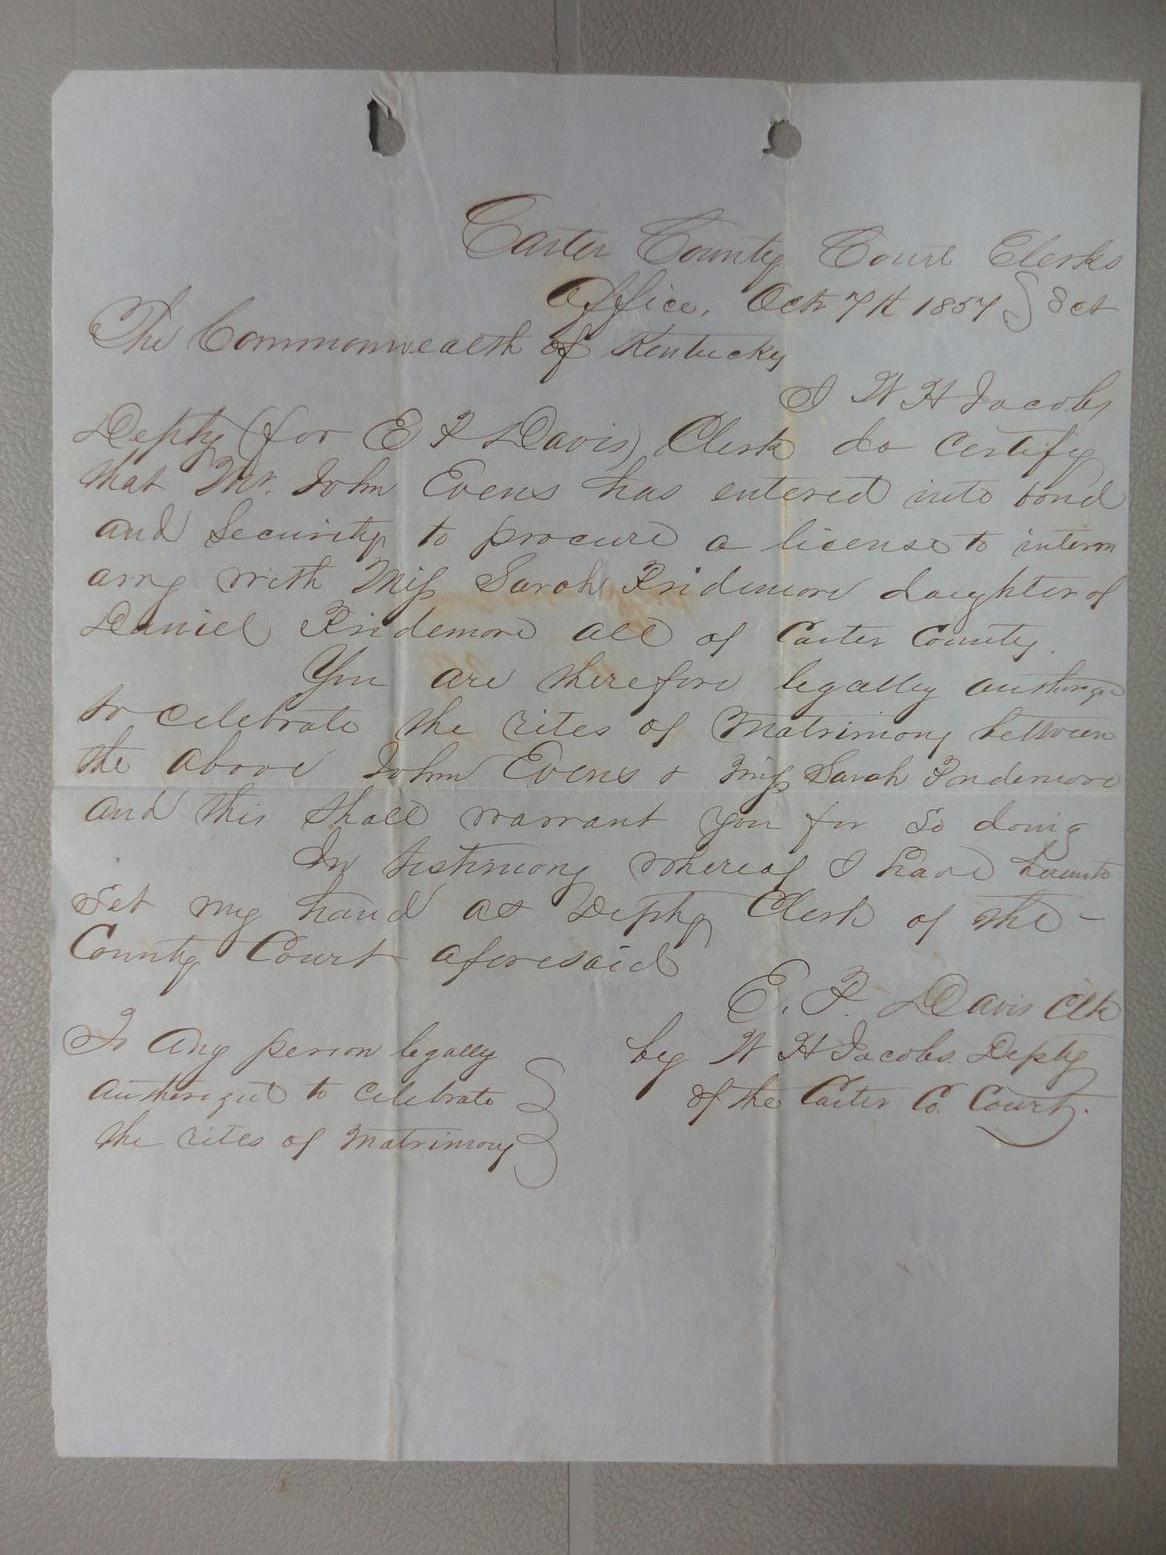 Carter County Court Clerks
Office, Octr 7th 1857 } Sct
The Commonwealth of Kentucky
I W H Jacobs
Depty (for E F Davis) Clerk do certify
that Mr. John Evens has entered into bond
and Security to procure a license to interm
arry with Miss Sarah Pridemore daughter of
Daniel Pridemore all of Carter County.
You are therefore legally authorize
to celebrate the rites of Matrimony between
the above John Evens & Miss Sarah Pridemore
and this Shall warrant you for So doing
In testimony whereof I have hereunto
Set my hand as Depty Clerk of the -
County Court aforesaid
E. F. Davis Clk
by W H Jacobs Depty
of the Carter Co. Court.
To Any person legally
authorized to celebrate
the rites of Matrimony